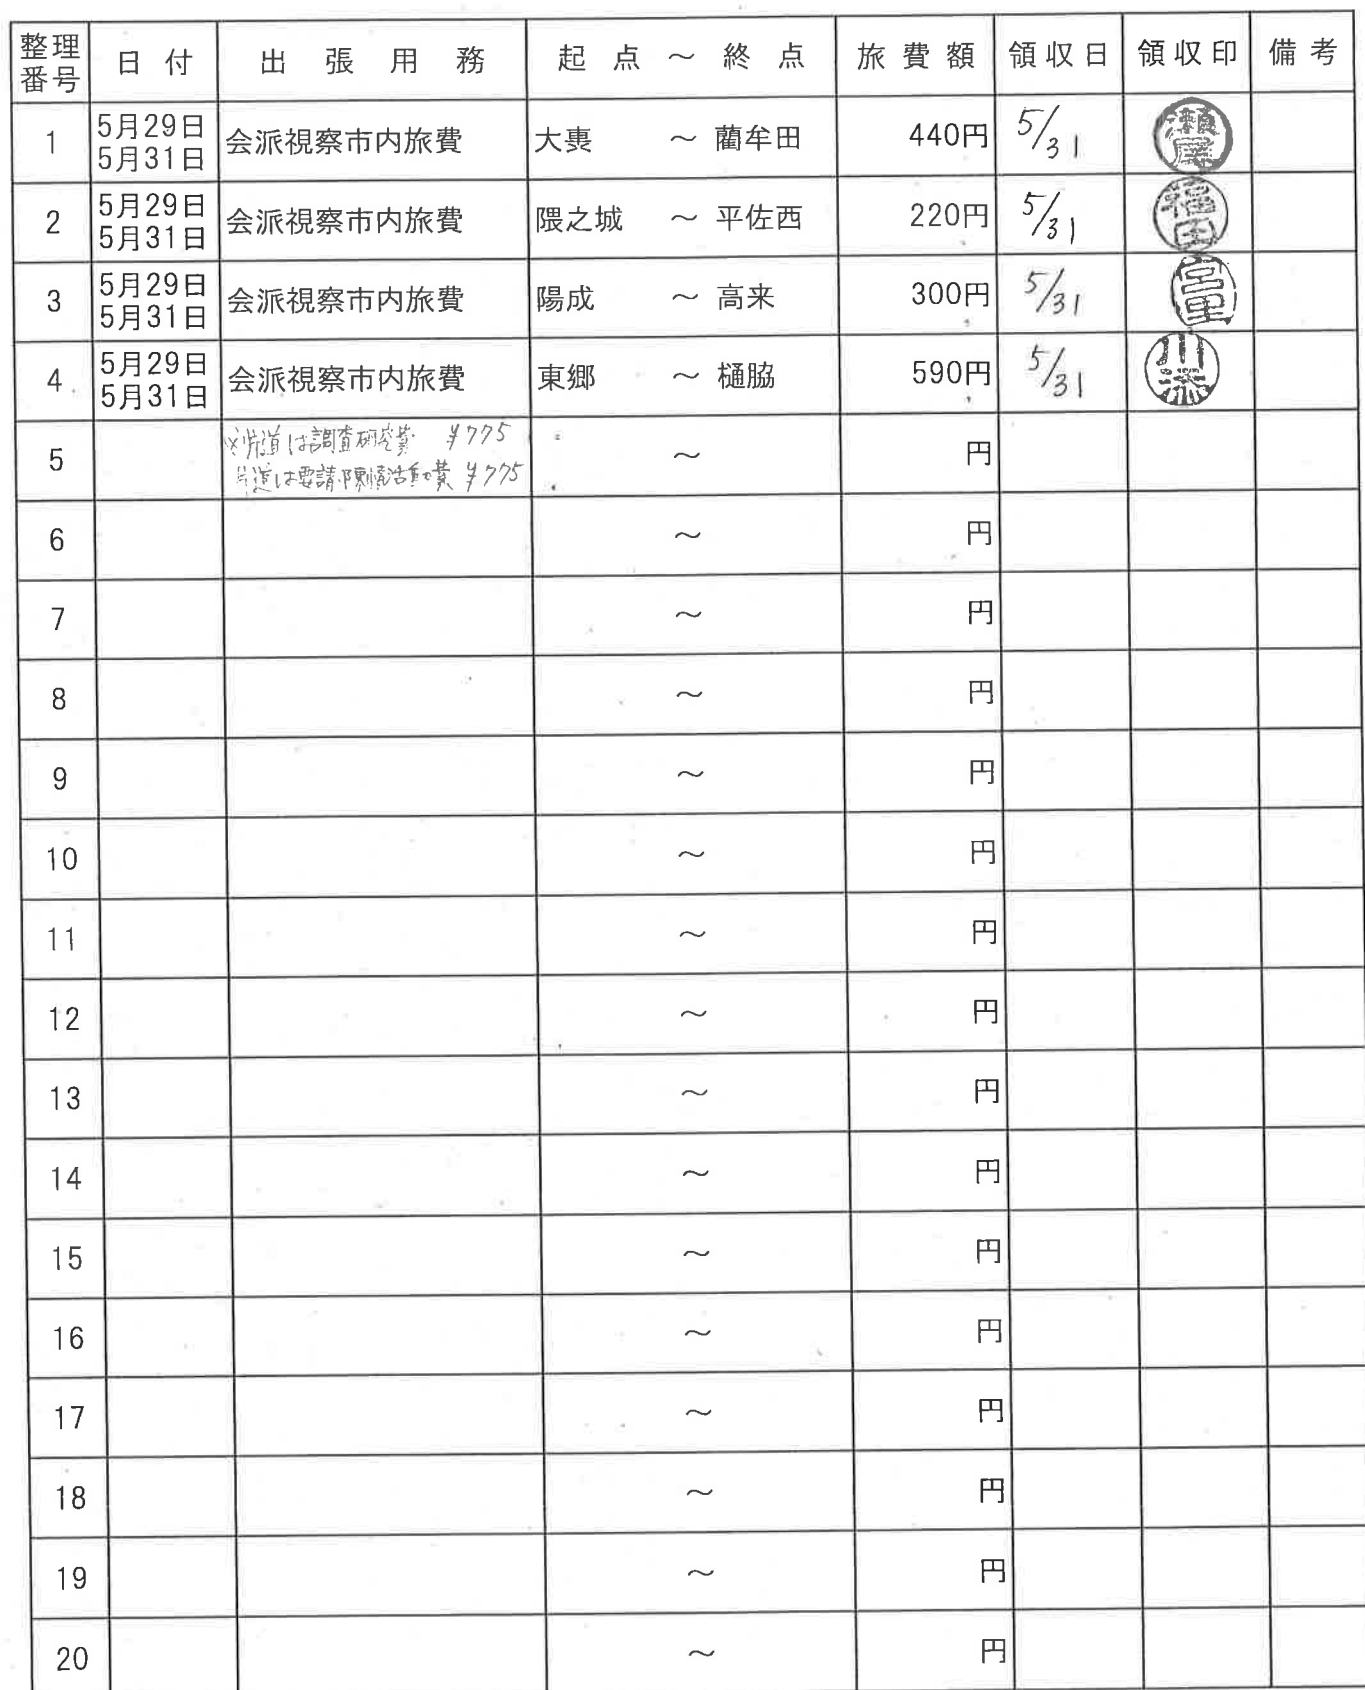 整理番号 日付 出張用務 起点～終点 旅費額 領収日 領収印 備考
1 5月29日 5月31日 会派視察市内旅費 大䮾 ～ 藺牟田 440円 5/31 瀬尾
2 5月29日 5月31日 会派視察市内旅費 隈之城 ～ 平佐西 220円 5/31 福田
3 5月29日 5月31日 会派視察市内旅費 陽成 ～ 高来 300円 5/31 宮里
4 5月29日 5月31日 会派視察市内旅費 東郷 ～ 樋脇 590円 5/31 川添
5 ～ 円
※片道は調査研究費 ¥775
片道は要請・陳情活動費 ¥775
6 ～ 円
7 ～ 円
8 ～ 円
9 ～ 円
10 ～ 円
11 ～ 円
12 ～ 円
13 ～ 円
14 ～ 円
15 ～ 円
16 ～ 円
17 ～ 円
18 ～ 円
19 ～ 円
20 ～ 円